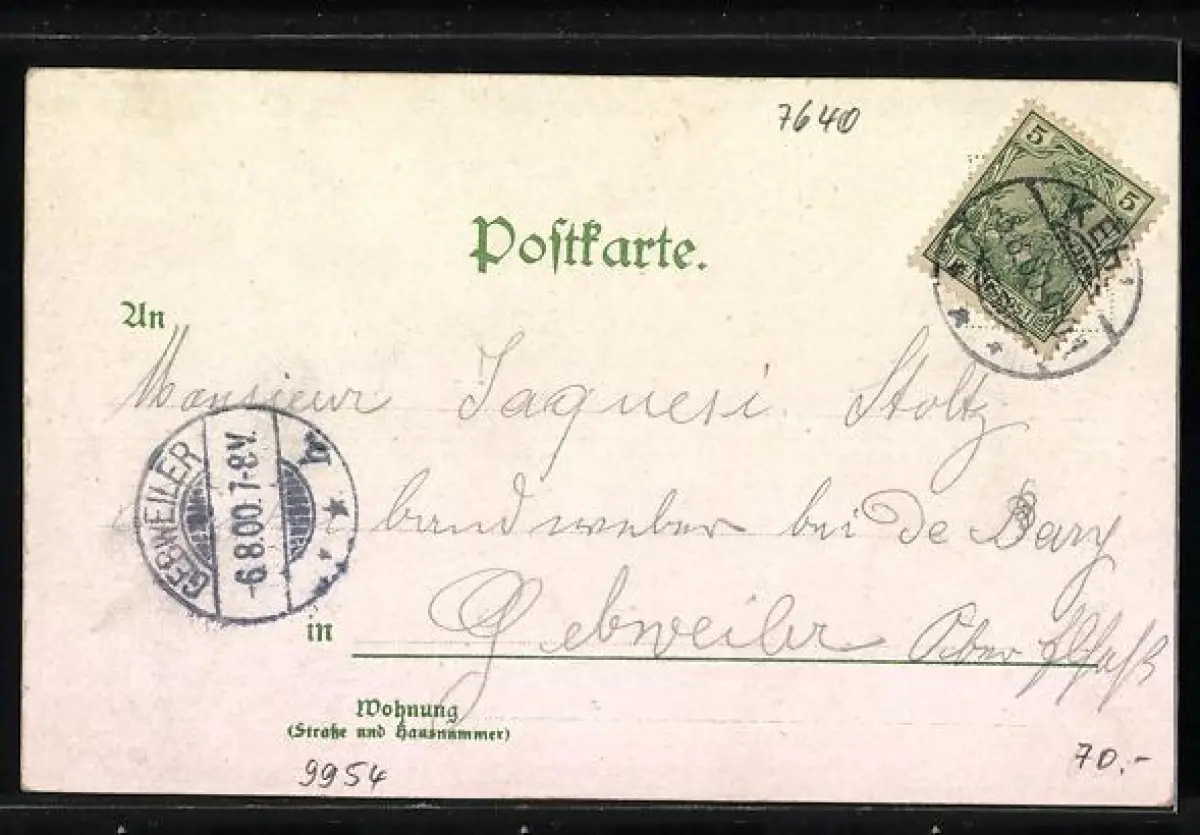 7640
5 5
KEHL
Postkarte.
An
Monsieur Jaquesi Stoltz
GEBWEILER
-6.8.00.7-8V.
bandweber bei de Bary
in Gebweiler Ober Elsaß
Wohnung
(Straße und Hausnummer)
9954
70.-